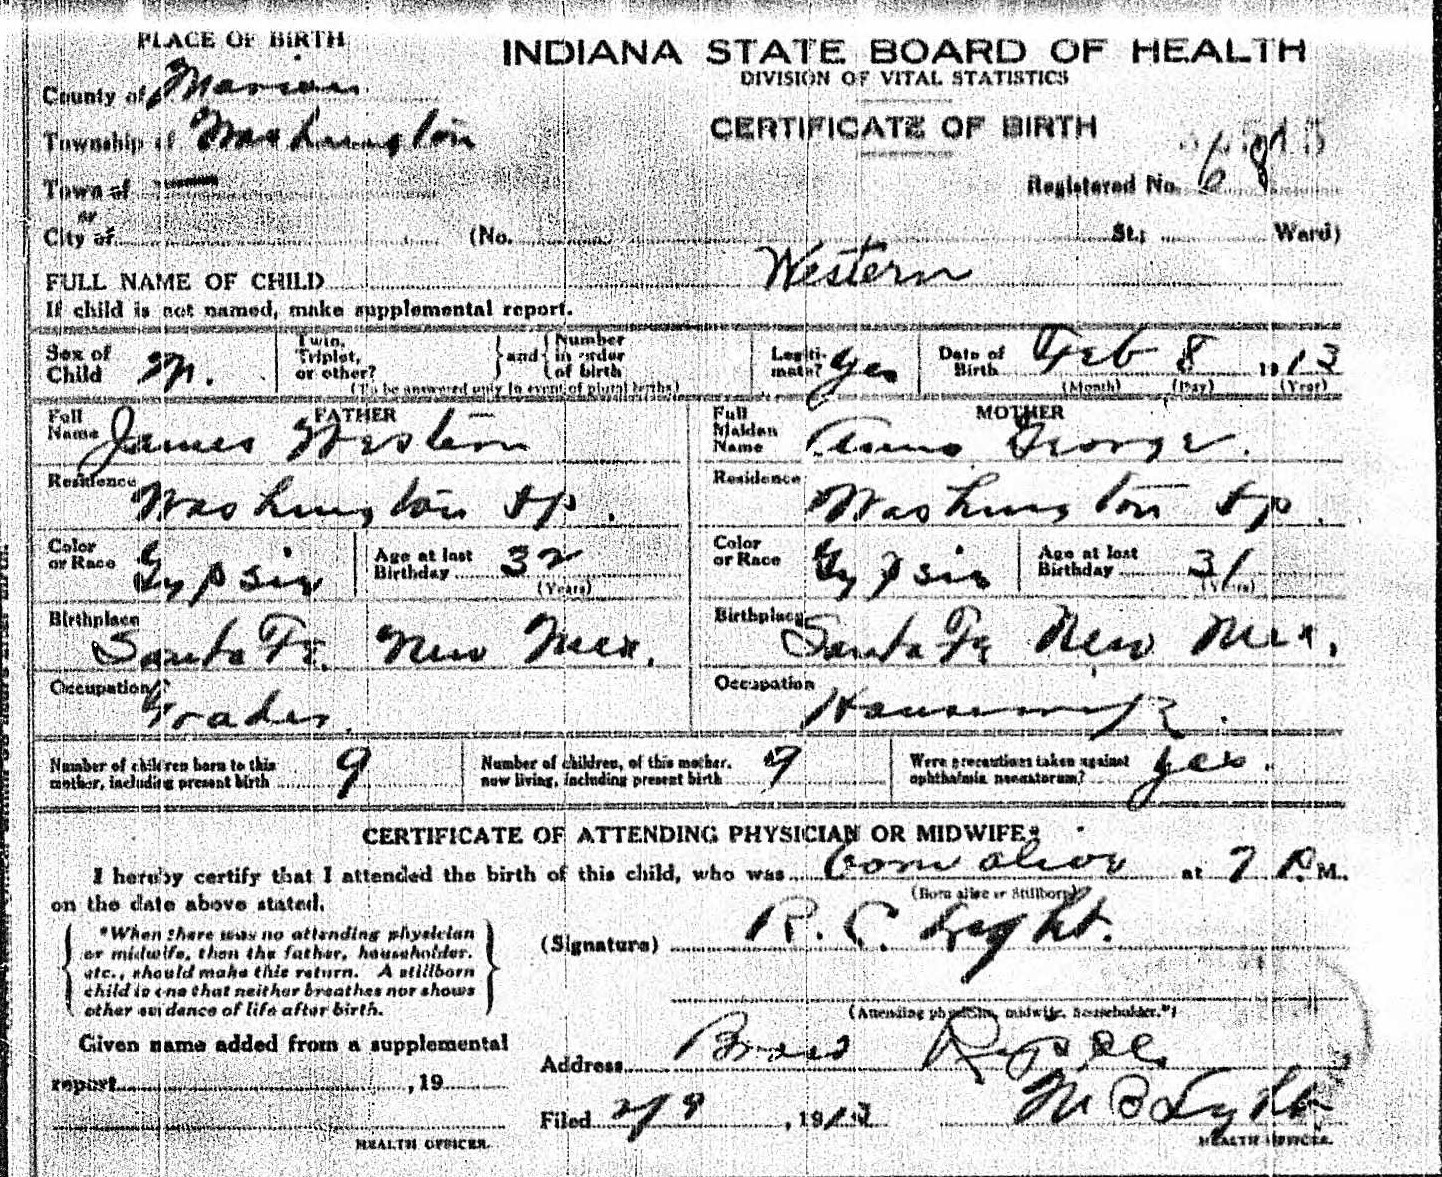 PLACE OF BIRTH
INDIANA STATE BOARD OF HEALTH
DIVISION OF VITAL STATISTICS
County of Marion
CERTIFICATE OF BIRTH
Township of Washington
Registered No. 68
Town of
or
City of (No. St.; Ward)
FULL NAME OF CHILD Western
If child is not named, make supplemental report.
Sex of Child M.
Twin, Triplet, or other? and Number in order of birth
(To be answered only in event of plural births)
Legitimate? Yes
Date of Birth Feb 8 1913
(Month) (Day) (Year)
FATHER
Full Name James Western
MOTHER
Full Maiden Name George.
Residence Washington tp.
Residence Washington tp.
Color or Race Gypsie
Age at last Birthday 32 (Years)
Color or Race Gypsie
Age at last Birthday 31 (Years)
Birthplace Santa Fe. New Mex.
Birthplace Santa Fe New Mex.
Occupation Trader.
Occupation Housewife.
Number of children born to this mother, including present birth 9
Number of children, of this mother, now living, including present birth 9
Were precautions taken against ophthalmia neonatorum? yes.
CERTIFICATE OF ATTENDING PHYSICIAN OR MIDWIFE*
I hereby certify that I attended the birth of this child, who was born alive at 7 P. M.,
(Born alive or Stillborn)
on the date above stated.
*When there was no attending physician
or midwife, then the father, householder,
etc., should make this return. A stillborn
child is one that neither breathes nor shows
other evidence of life after birth.
(Signature) R. C. Light.
(Attending physician, midwife, householder.*)
Given name added from a supplemental
report , 19
Address Broad Ripple
Filed 2/9, 1913
HEALTH OFFICER.
HEALTH OFFICER.